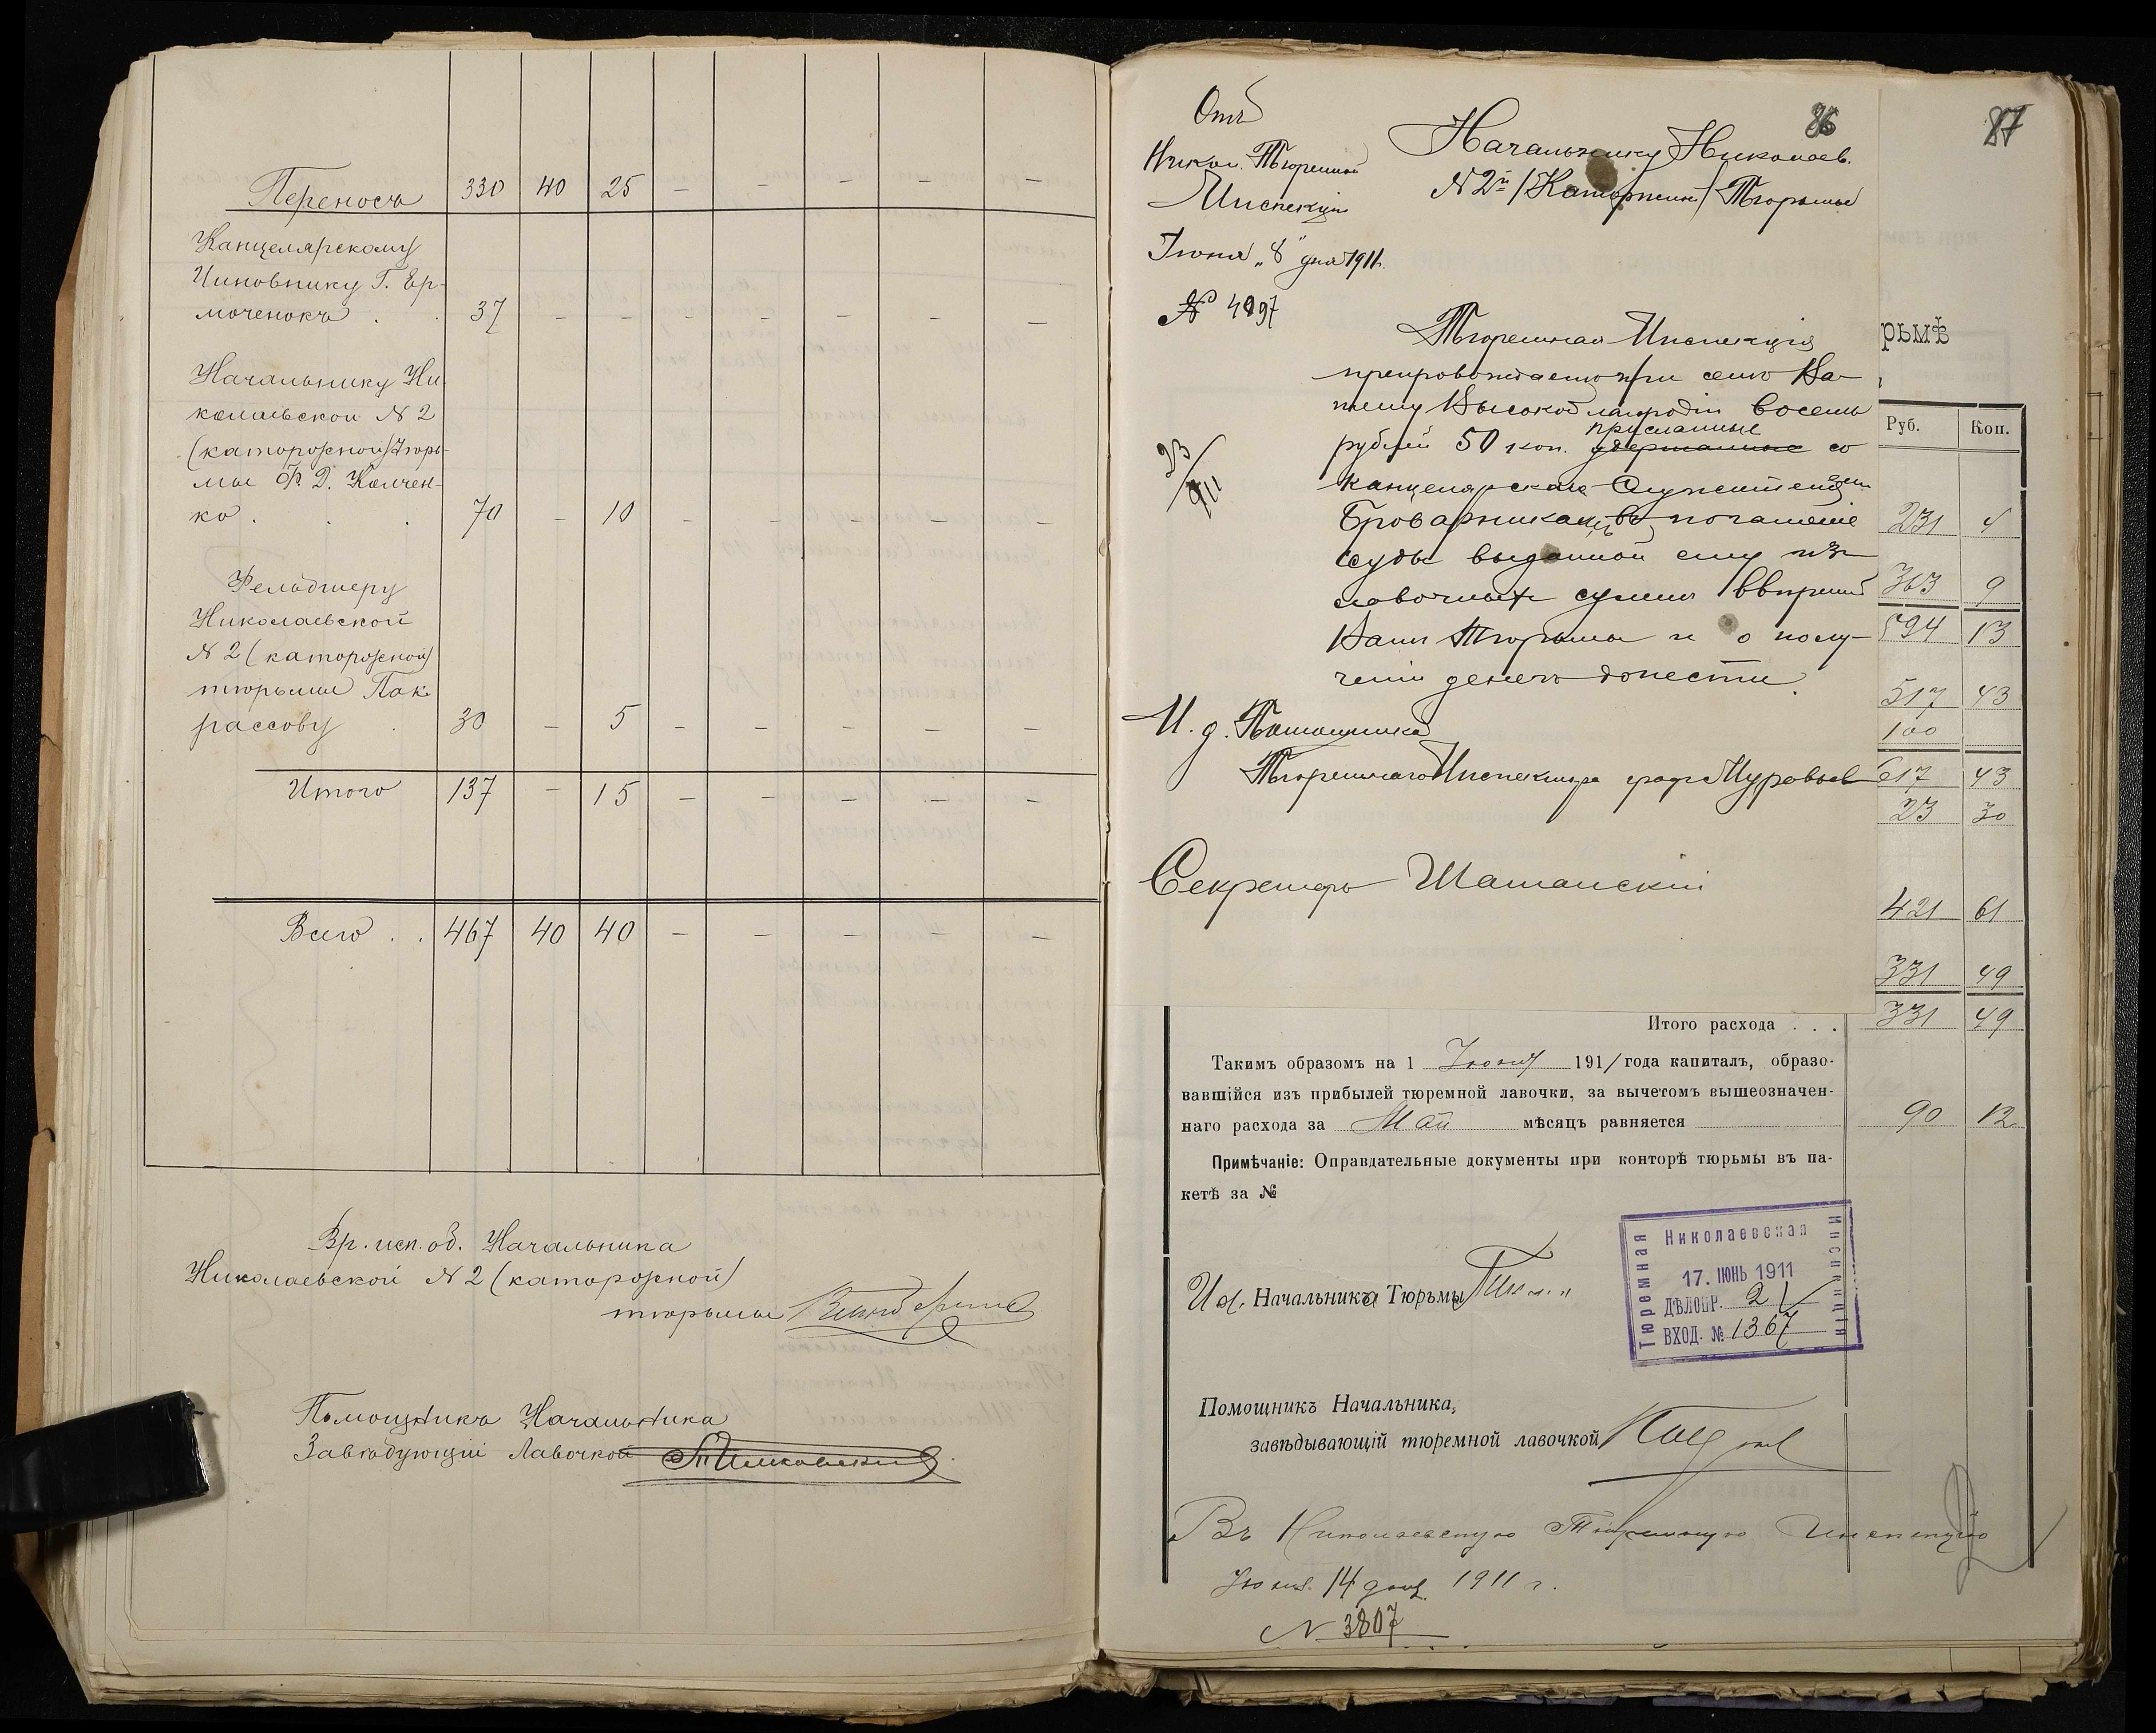 Переносъ 330 40 25 — — — — —
Канцелярскому
Чиновнику Г. Ер-
моченокъ . . 37 — — — — — — —
Начальнику Ни-
колаевской N 2
(каторожной) тюрь-
мы Ф. Д. Колчен-
ко . . . 70 — 10 — — — — —
Фельдшеру
Николаевской
N 2 (каторожной)
тюрьмы Пак
рассову . 30 — 5 — — — — —
Итого 137 — 15 — — — — —
Всего . . 467 40 40 — — — — —
Вр. исп. об. Начальника
Николаевской N 2 (каторожной)
тюрьмы
Помощникъ Начальника
Завѣдующій Лавочкой
87
86
Отъ
Никол. Тюремной
Инспекціи
Іюня „8" дня 1911.
№ 4897
Начальнику Николаев.
N 2й /Каторжной/ Тюрьмы
Тюремная Инспекція
препровождаетъ при семъ Ва-
шему Высокоблагородію восемь
присланные
рублей 50 коп. удержанные со
канцелярскаго Служителя
Броварника въ погашеніе
ссуды выданной ему изъ
лавочныхъ суммъ ввѣренной
Вамъ Тюрьмы и о полу-
ченіи денегъ донести.
23/911
И. д. Помощника
Тюремнаго Инспектора графъ Муравьевъ
Секретарь Шаманскій
рьмѣ
Руб. Коп.
231 4
363 9
594 13
517 43
100
617 43
23 30
421 61
331 49
Итого расхода . . . 331 49
Такимъ образомъ на 1 Іюня 1911 года капиталъ, образо-
вавшійся изъ прибылей тюремной лавочки, за вычетомъ вышеозначен-
наго расхода за Май мѣсяцъ равняется 90 12
Примѣчаніе: Оправдательные документы при конторѣ тюрьмы въ па-
кетѣ за №
Николаевская
Тюремная
Инспекція
17. ІЮНЬ 1911
ДѢЛОПР. 2
ВХОД. № 1367
И. д. Начальника Тюрьмы
Помощникъ Начальника,
завѣдывающій тюремной лавочкой
Въ Николаевскую Тюремную Инспекцію
Іюня 14 дня 1911 г.
N 3807